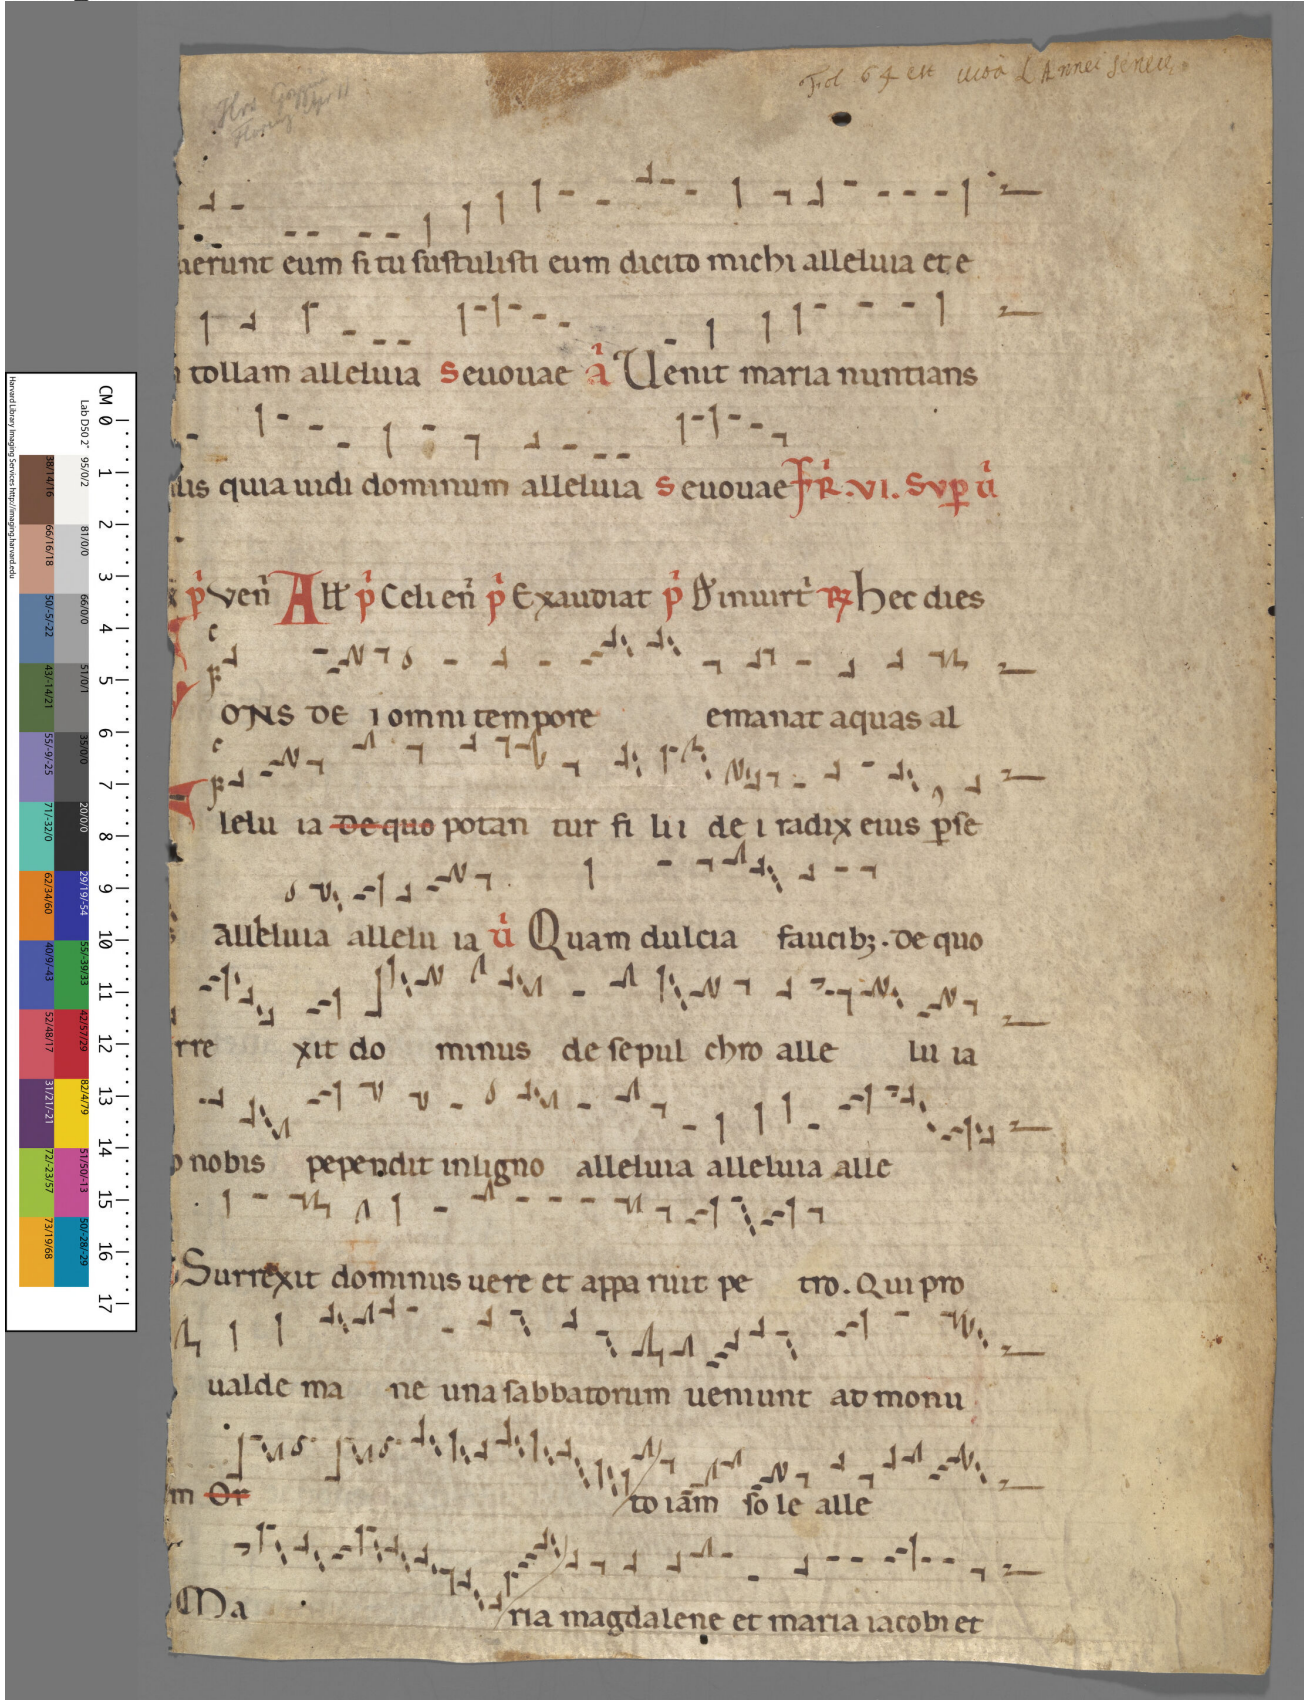 Fol 64 est
uerunt eum si tu sustulisti eum dicito michi alleluia et e
tollam alleluia Seuouae a Uenit maria nuntians
lis quia uidi dominum alleluia seuouae FR. VI. SVP
p ven All p Celi en p Exaudiat p inuirt R hec dies
ONS DE I omni tempore emanat aquas al
lelu ia De quo potan tur fi lii de i radix eius pse
alleluia allelu ia Quam dulcia faucib; . De quo
rre xit do minus de sepul chro alle lu ia
nobis pependit in ligno alleluia alleluia alle
Surrexit dominus uere et appa ruit pe tro. Qui pro
ualde ma ne una sabbatorum ueniunt ad monu
m Or to iam so le alle
Ma ria magdalene et maria iacobi et
Harvard Library Imaging Services http://imaging.harvard.edu
Lab D50 2°
CM 0 1 2 3 4 5 6 7 8 9 10 11 12 13 14 15 16 17
95/0/2 81/0/0 66/0/0 51/0/1 35/0/0 20/0/0 29/19/-54 55/-39/33 42/57/29 82/4/79 51/50/-13 50/-28/-29
38/14/16 66/16/18 50/-5/-22 43/-14/21 55/-9/-25 71/-32/0 62/34/60 40/9/-43 52/48/17 31/21/-21 72/-23/57 73/19/68